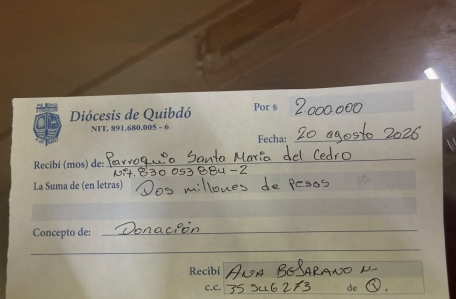 Diócesis de Quibdó
NIT. 891.680.005 - 6
Por $ 2000.000
Fecha: 20 agosto 2026
Recibí (mos) de: Parroquia Santa Maria del Cedro
Nit. 830 053 884-2
La Suma de (en letras) Dos millones de pesos
Concepto de: Donación
Recibí ANA BEJARANO N-
c.c. 35 546 273 de Q.